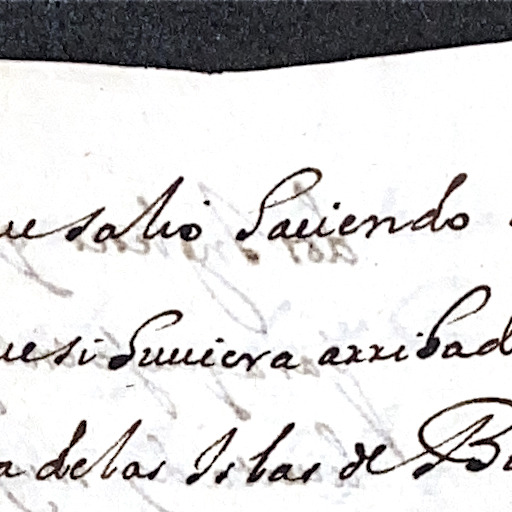 ue salio haciendo
ue si huuiera arribad
a de las Islas de B